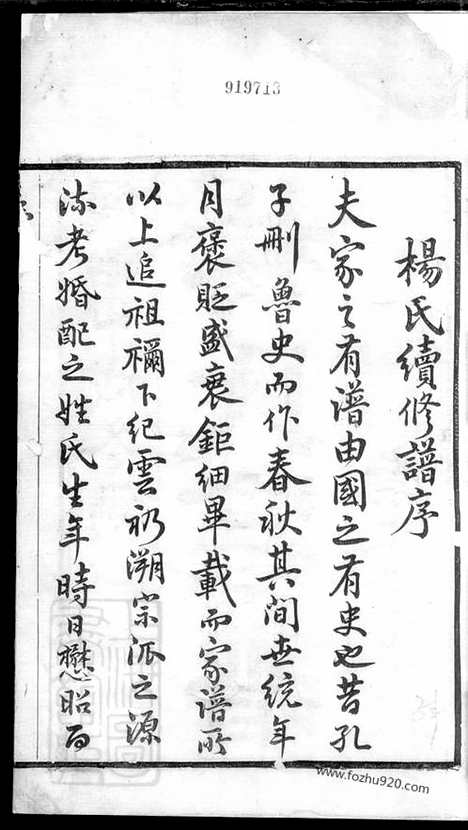 919713
楊氏續修譜序
夫家之有譜由國之有史也昔孔
子刪魯史而作春秋其間世統年
月褒貶盛衰鉅細畢載而家譜所
以上追祖禰下紀雲礽溯宗派之源
流考婚配之姓氏生年時日懋昭百
www.fozhu920.com